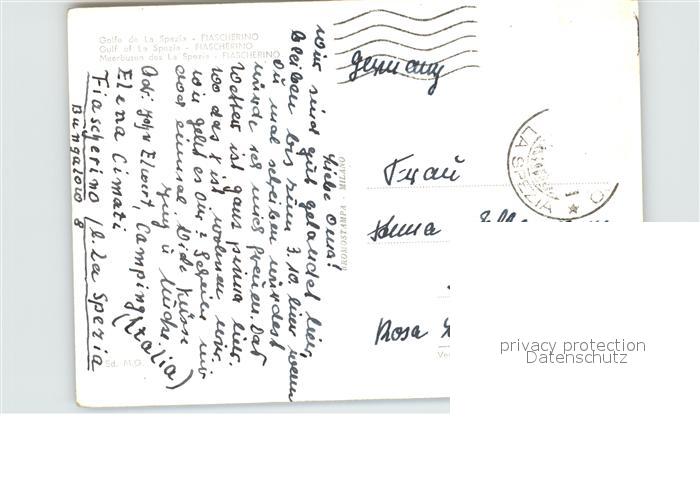 Golfo de La Spezia - FIASCHERINO
Gulf of La Spezia - FIASCHERINO
Meerbusen des La Spezia - FIASCHERINO
Liebe Oma!
Wir sind gut gelandet hier,
bleiben bis zum 3.10. hier wenn
Du mal schreiben würdest
würde ich mich freuen. Das
Wetter ist ganz prima hier.
Wo das x ist wohnen wir.
Wie geht es Dir? Schreib mir
doch einmal. Viele Küsse
Adr. John Elwirt, Camping
Elena Cimati (Italia)
Fiascherino / b. La Spezia
Bungalow 8
Ed. M.G.
CROMOSTAMPA - MILANO
Germany
LA SPEZIA
Frau
Anna
Rosa
privacy protection
Datenschutz